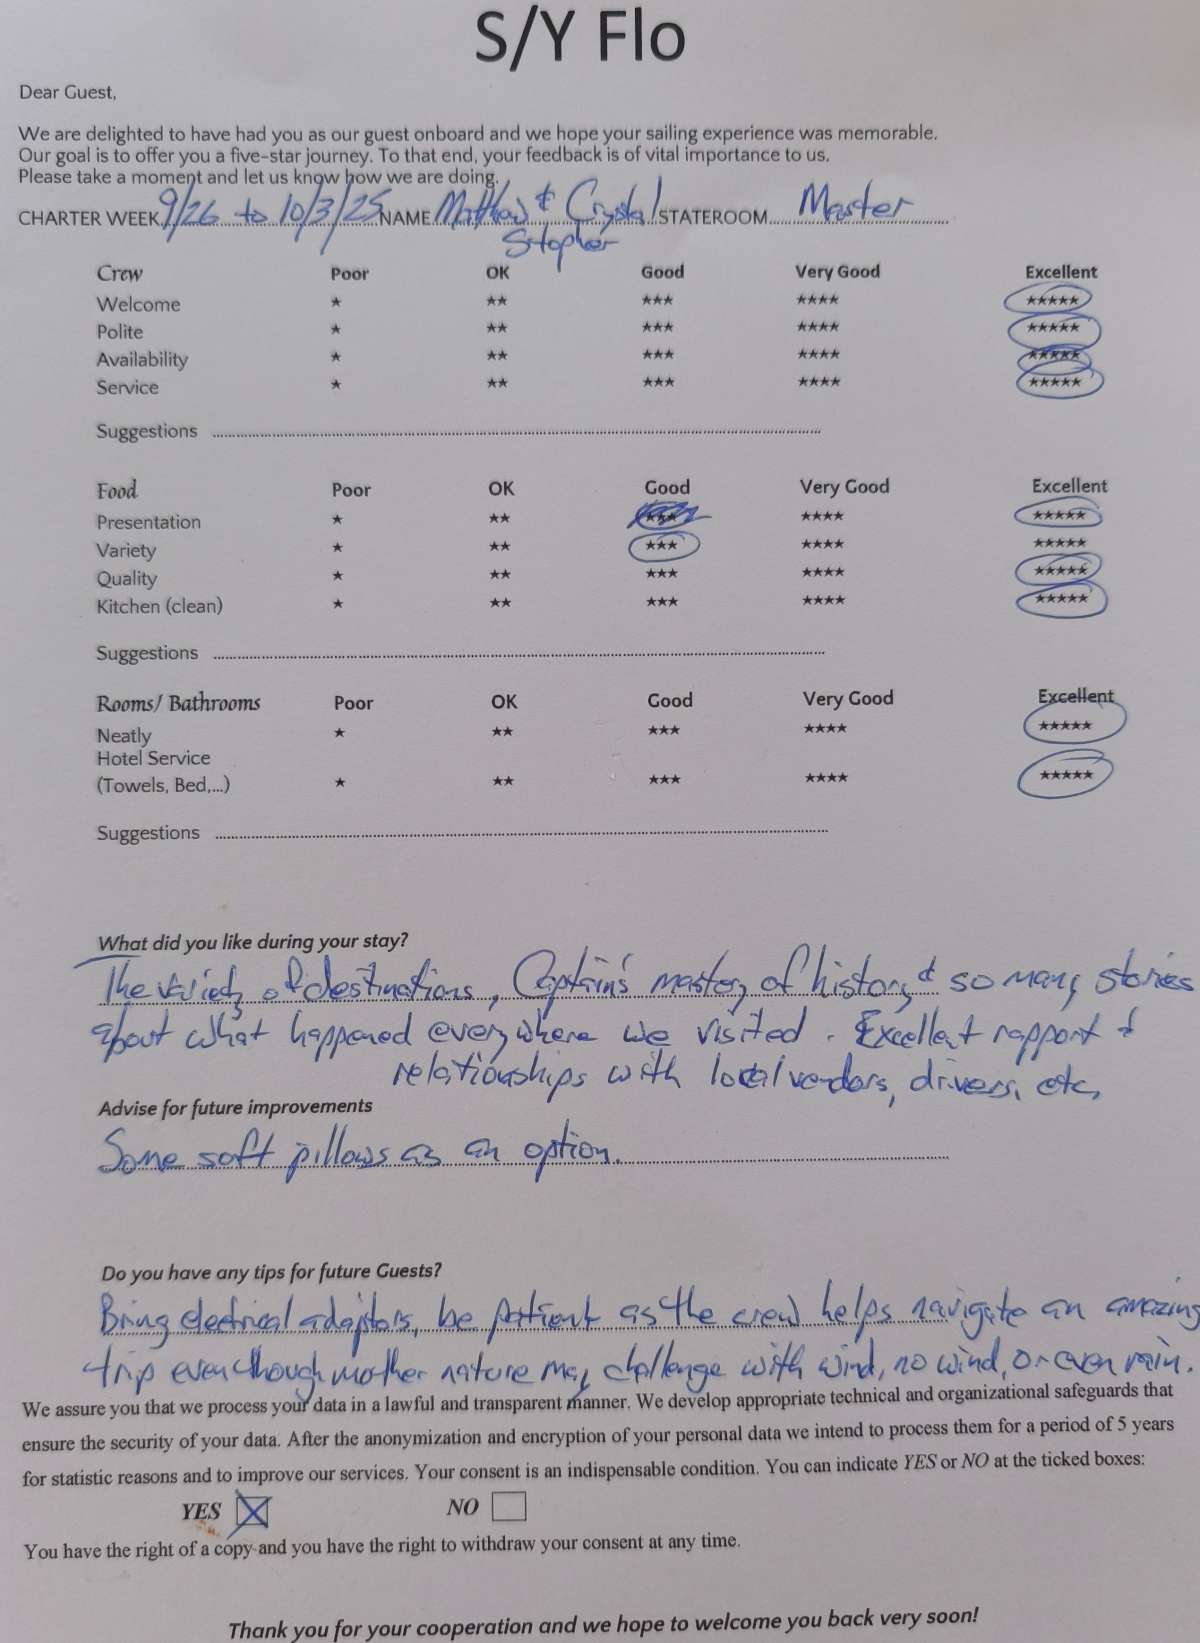 S/Y Flo
Dear Guest,
We are delighted to have had you as our guest onboard and we hope your sailing experience was memorable.
Our goal is to offer you a five-star journey. To that end, your feedback is of vital importance to us.
Please take a moment and let us know how we are doing.
CHARTER WEEK 9/26 to 10/3/25 NAME Matthew & Crystal STATEROOM Master
Sitopher
Crew Poor OK Good Very Good Excellent
Welcome ★ ★★ ★★★ ★★★★ ★★★★★
Polite ★ ★★ ★★★ ★★★★ ★★★★★
Availability ★ ★★ ★★★ ★★★★ ★★★★★
Service ★ ★★ ★★★ ★★★★ ★★★★★
Suggestions
Food Poor OK Good Very Good Excellent
Presentation ★ ★★ ★★★ ★★★★ ★★★★★
Variety ★ ★★ ★★★ ★★★★ ★★★★★
Quality ★ ★★ ★★★ ★★★★ ★★★★★
Kitchen (clean) ★ ★★ ★★★ ★★★★ ★★★★★
Suggestions
Rooms/ Bathrooms Poor OK Good Very Good Excellent
Neatly ★ ★★ ★★★ ★★★★ ★★★★★
Hotel Service
(Towels, Bed,...) ★ ★★ ★★★ ★★★★ ★★★★★
Suggestions
What did you like during your stay?
The variety of destinations, Captain's mastery of history & so many stories
about what happened everywhere we visited. Excellent rapport &
relationships with local vendors, drivers, etc,
Advise for future improvements
Some soft pillows as an option.
Do you have any tips for future Guests?
Bring electrical adaptors, be patient as the crew helps navigate an amazing
trip even though mother nature may challenge with wind, no wind, or even rain.
We assure you that we process your data in a lawful and transparent manner. We develop appropriate technical and organizational safeguards that
ensure the security of your data. After the anonymization and encryption of your personal data we intend to process them for a period of 5 years
for statistic reasons and to improve our services. Your consent is an indispensable condition. You can indicate YES or NO at the ticked boxes:
YES NO
You have the right of a copy and you have the right to withdraw your consent at any time.
Thank you for your cooperation and we hope to welcome you back very soon!